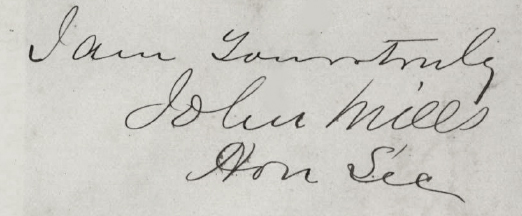 I am Yours truly
John Mills
Hon Sec